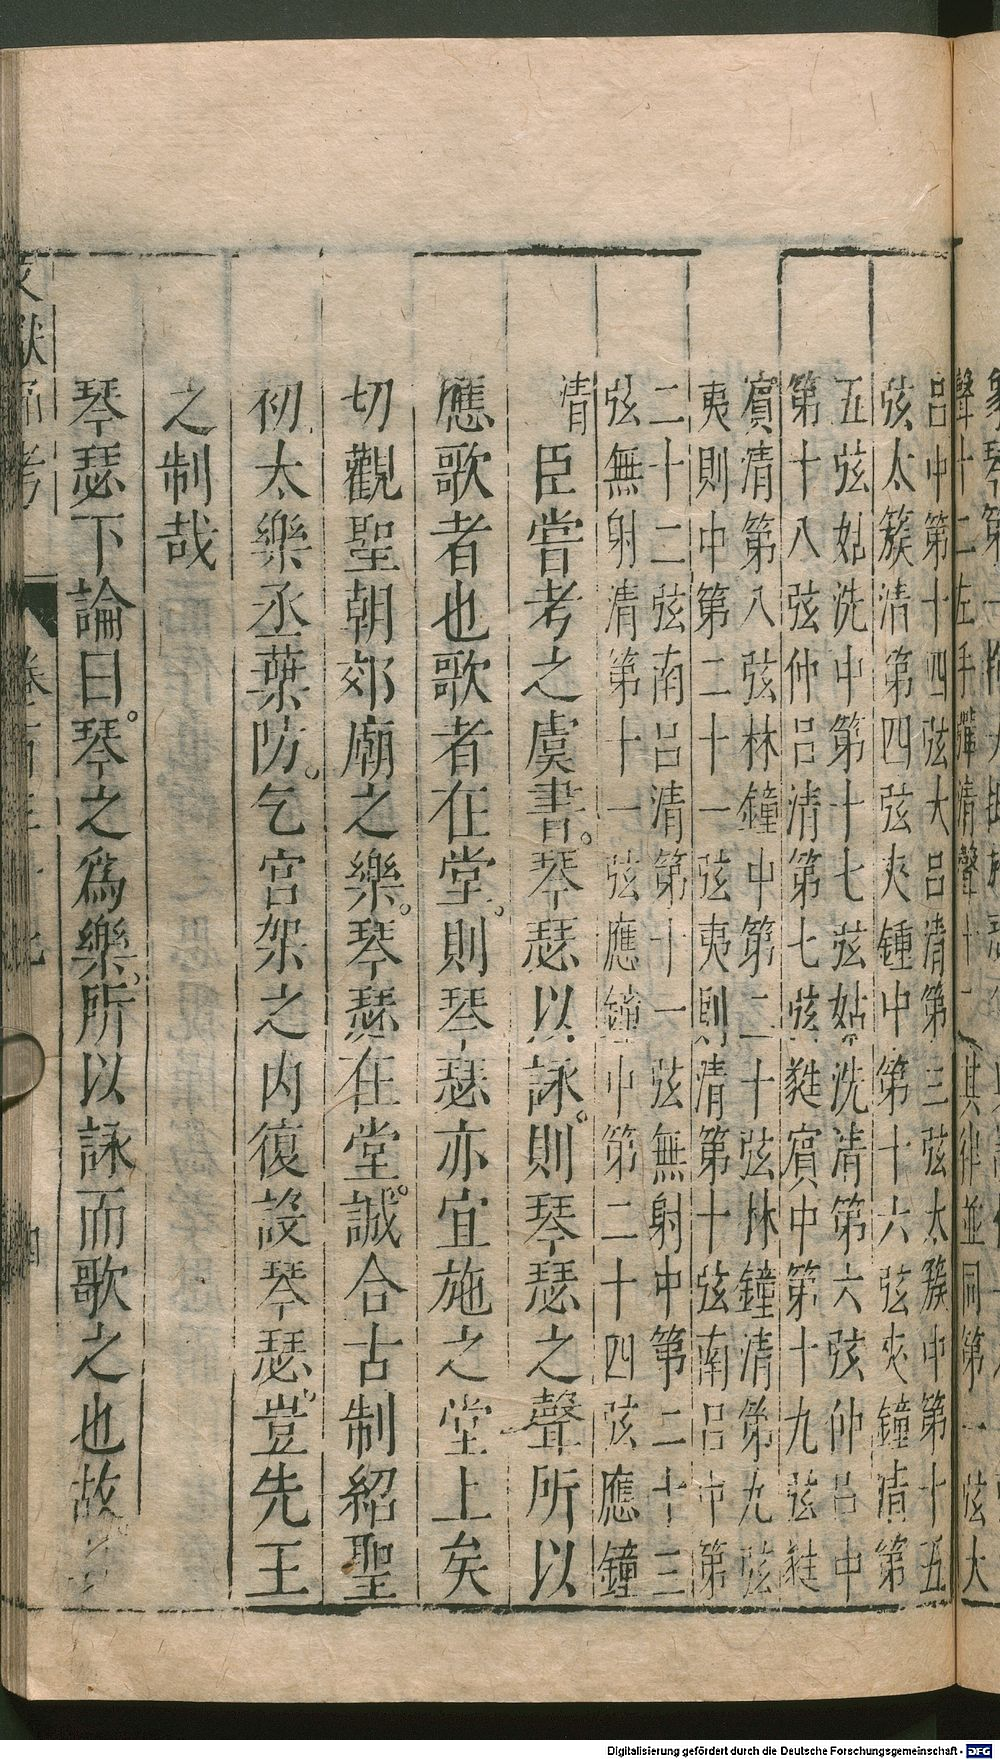 聲十二左手彈清聲十二其律並同第一弦大
呂中第十四弦大呂清第三弦太簇中第十五
弦太簇清第四弦夾鍾中第十六弦夾鐘清第
五弦姑洗中第十七弦姑洗清第六弦仲呂中
第十八弦仲呂清第七弦蕤賓中第十九弦蕤
賓清第八弦林鐘中第二十弦林鐘清第九弦
夷則中第二十一弦夷則清第十弦南呂中第
二十二弦南呂清第十一弦無射中第二十三
弦無射清第十一弦應鐘中第二十四弦應鐘
清
臣嘗考之虞書。琴瑟以詠。則琴瑟之聲所以
應歌者也歌者在堂。則琴瑟亦宜施之堂上矣
切觀聖朝郊廟之樂。琴瑟在堂。誠合古制紹聖
初太樂丞葉防。乞宮架之內復設琴瑟。豈先王
之制哉
琴瑟下論曰。琴之爲樂。所以詠而歌之也故
文獻通考
Digitalisierung gefördert durch die Deutsche Forschungsgemeinschaft - DFG